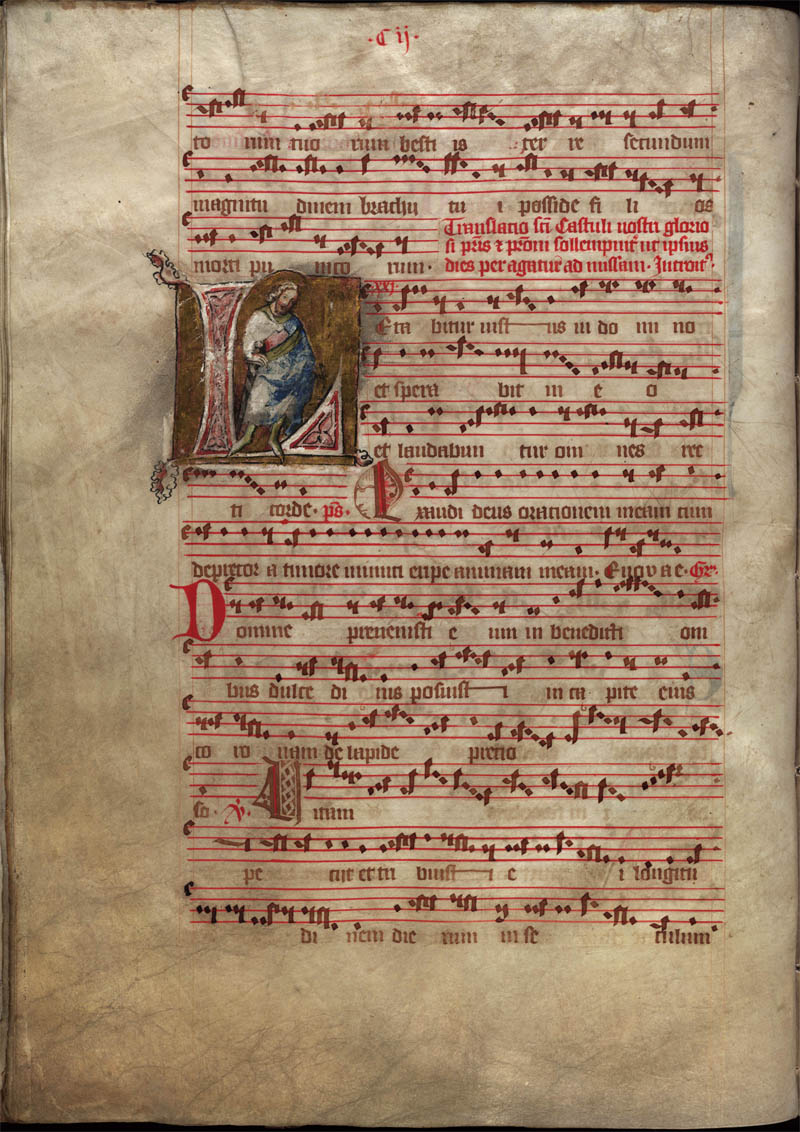 ·C ij·
to rum tuo rum besti is ter re secundum
magnitu dinem brachii tu i posside fi li os
morti fi ca to rum·
Translatio sct̄i Castuli nostri glorio
si pr̄is et pr̄oni sollempnit̄ ut ipsius
dies per agatur ad missam. Introit9.
Leta bitur iust us in do mi no
et spera bit in e o
et laudabun tur om nes rec
ti corde· ps̄·
Exaudi deus orationem meam cum
deprecor a timore inimici eripe animam meam· Euovae· Gr̄·
Domine preuenisti e um in benedicti oni
bus dulce di nis posuist i in ca pite eius
co ro nam de lapide precio
so· V̄·
Uitam
pe cijt et tribuist i e i longitu
di nem die rum in se culum